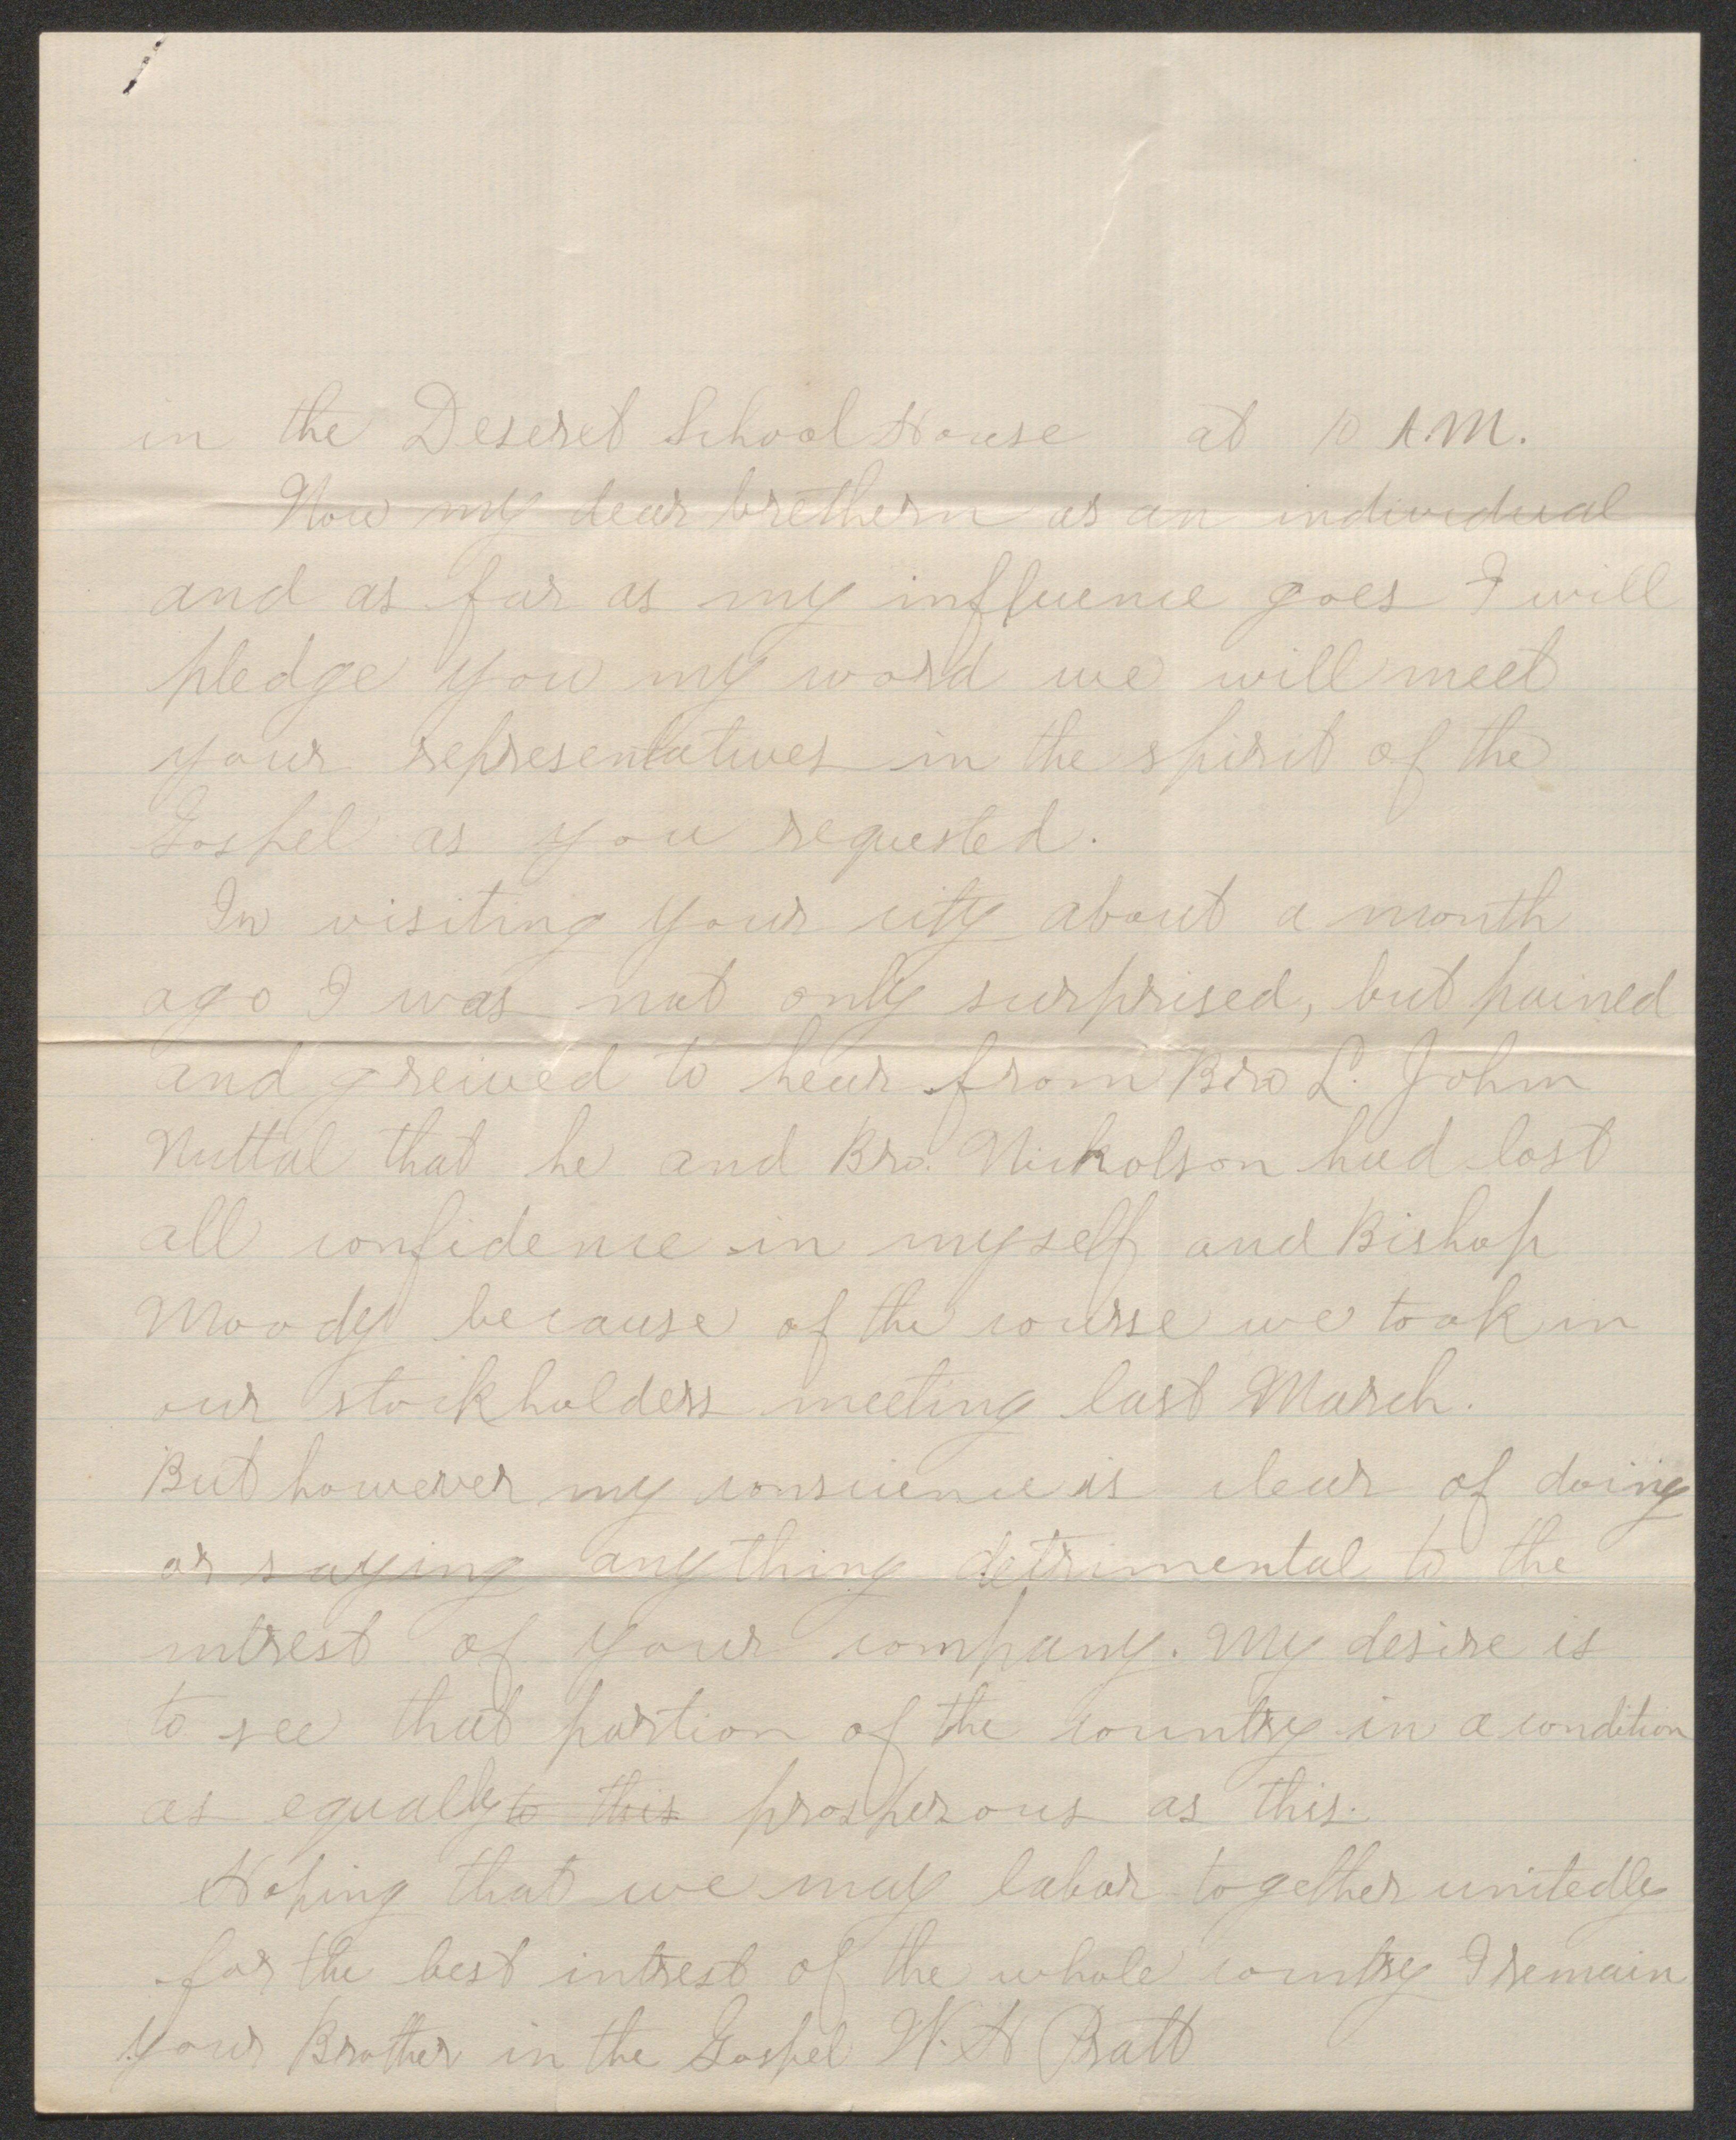 in the Deseret School House at 10 A.M.
Now my dear brethern as an individual
and as far as my influence goes I will
pledge you my word we will meet
your representatives in the spirit of the
Gospel as you requested.
In visiting your city about a month
ago I was not only surprised, but pained
and greived to hear from Bro L. John
Nuttal that he and Bro. Nickolson had lost
all confidence in myself and Bishop
Moody because of the course we took in
our stockholders meeting last March.
But however my conscience is clear of doing
or saying anything detrimental to the
intrest of your company. My desire is
to see that portion of the country in a condition
as equally to this prosperous as this.
Hoping that we may labor together unitedly
for the best intrest of the whole country I remain
your Brother in the Gospel W. H Pratt